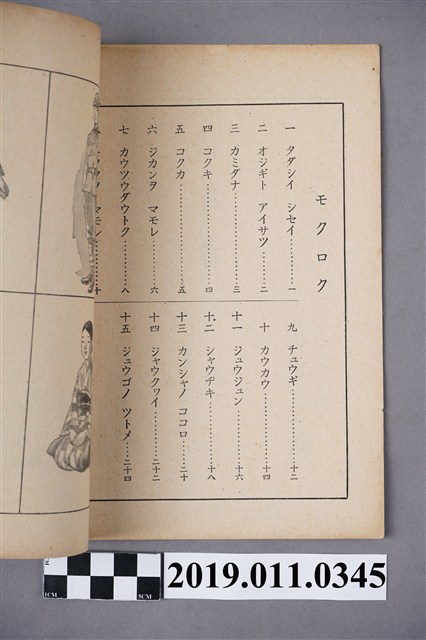 モクロク
一 タダシイ シセイ…………一
二 オジギト アイサツ……二
三 カミダナ…………三
四 コクキ…………四
五 コクカ…………五
六 ジカンヲ マモレ……六
七 カウツウダウトク…………八
マモレ……十
九 チュウギ…………十二
十 カウカウ…………十四
十一 ジュウジュン…………十六
十二 シャウヂキ…………十八
十三 カンシャノ ココロ……二十
十四 ジャウクヮイ……二十二
十五 ジュウゴノ ツトメ……二十四
1CM
5CM
2019.011.0345